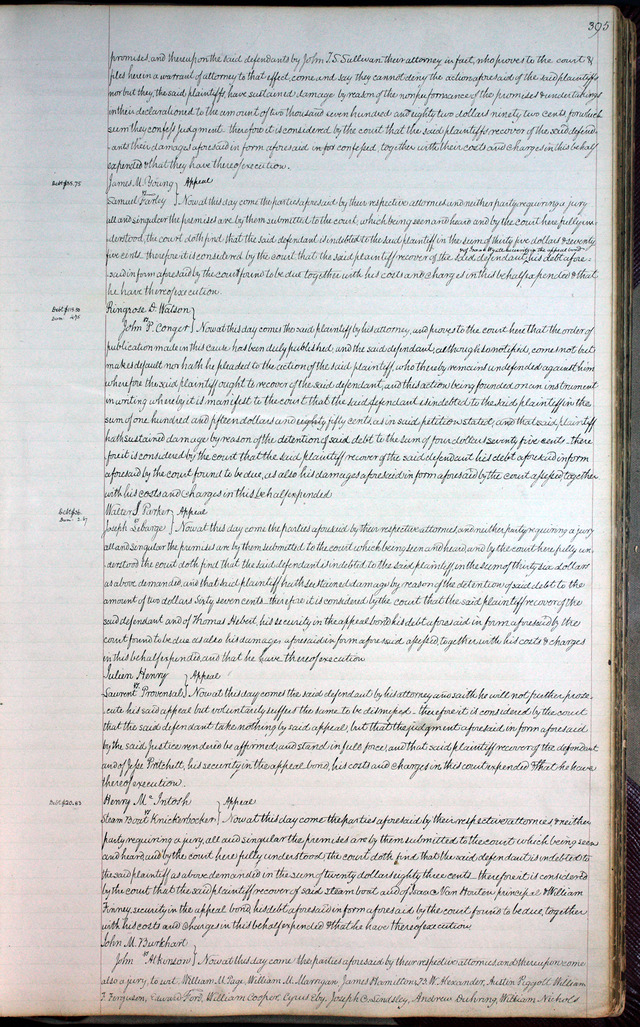 395
promises, and thereupon the said defendants by John T. S. Sullivan their attorney in fact, who proves to the court &
files herein a warrant of attorney to that effect, come, and say they cannot deny the action aforesaid of the said plaintiffs
nor but they, the said plaintiffs, have sustained damage by reason of the nonperformance of the promises & undertakings
in their declaration to the amount of two thousand seven hundred and eighty two dollars ninety two cents, for which
sum they confess judgment. therefore it is considered by the court that the said plaintiffs recover of the said defend-
ants their damages aforesaid in form aforesaid confessed, together with their costs and charges in this behalf
expended & that they have thereof execution.
James M. Young } Appeal
Debt $35.75
vs
Samuel Farley } Now at this day come the parties aforesaid by their respective attornies and neither party requiring a jury
all and singular the premises are by them submitted to the court, which being seen and heard and by the court here fully un-
derstood, the court doth find that the said defendant is indebted to the said plaintiff in the sum of thirty five dollars & seventy
five cents. therefore it is considered by the court that the said plaintiff recover of the said defendant, his debt afore-
said in form aforesaid by the court found to be due together with his costs and charges in this behalf expended & that
he have thereof execution.
Ringrose D. Watson }
vs
John P. Conger } Now at this day comes the said plaintiff by his attorney, and proves to the court here that the order of
publication made in this cause has been duly published, and the said defendant, although so notified, comes not but
makes default nor hath he pleaded to the action of the said plaintiff, who thereby remains undefended against him
wherefore the said plaintiff ought to recover of the said defendant, and this action being founded on an instrument
in writing whereby it is manifest to the court that the said defendant is indebted to the said plaintiff in the
sum of one hundred and fifteen dollars and eighty fifty cents, as in said petition stated, and that said plaintiff
hath sustained damage by reason of the detention of said debt to the sum of four dollars seventy five cents. there
fore it is considered by the court that the said plaintiff recover of the said defendant his debt aforesaid in form
aforesaid by the court found to be due, as also his damages aforesaid in form aforesaid by the court assessed, together
with his costs and charges in this behalf expended
Walter S Parker } Appeal
Dam. 2.67
vs
Joseph Lebarge } Now at this day come the parties aforesaid by their respective attornies and neither party requiring a jury
all and singular the premises are by them submitted to the court which being seen and heard, and by the court here fully un-
derstood the court doth find that the said defendant is indebted to the said plaintiff in the sum of thirty six dollars
as above demanded, and that said plaintiff hath sustained damage by reason of the detention of said debt to the
amount of two dollars sixty seven cents. therefore it is considered by the court that the said plaintiff recover of the
said defendant and of Thomas Hebert his security in the appeal bond his debt aforesaid in form aforesaid by the
court found to be due as also his damages aforesaid in form aforesaid assessed, together with his costs & charges
in this behalf expended, and that he have thereof execution
Julien Henry } Appeal
vs
Laurent Provensal } Now at this day comes the said defendant by his attorney and saith he will not further prose-
cute his said appeal but voluntarily suffers the same to be dismissed. therefore it is considered by the court
that the said defendant take nothing by said appeal, but that the judgment aforesaid in form aforesaid
by the said Justice rendered be affirmed, and stand in full force, and that said plaintiff recover of the defendant
and of Jesse Pritchett, his security in the appeal bond, his costs and charges in this court expended & that he have
thereof execution.
Henry McIntosh } Appeal
Debt $20.83
vs
Steam Boat Knickerbocker } Now at this day come the parties aforesaid by their respective attornies & neither
party requiring a jury, all and singular the premises are by them submitted to the court which being seen
and heard and by the court here fully understood, the court doth find that the said defendant is indebted to
the said plaintiff as above demanded in the sum of twenty dollars eighty three cents. therefore it is considered
by the court that the said plaintiff recover of said steam boat and of Isaac Van Houten principal & William
Finney, security in the appeal bond, his debt aforesaid in form aforesaid by the court found to be due, together
with his costs and charges in this behalf expended & that he have thereof execution
John M. Burkhart }
vs
John Atkinson } Now at this day come the parties aforesaid by their respective attornies and thereupon come
also a jury, to wit, William M. Page, William M. Marrigan, James Hamilton, B. W. Alexander, Austin Piggott William
F. Ferguson, Edward Ford, William Cooper, Cyrus Eby, Joseph C. Lindsley, Andrew Duhring, William Nichols